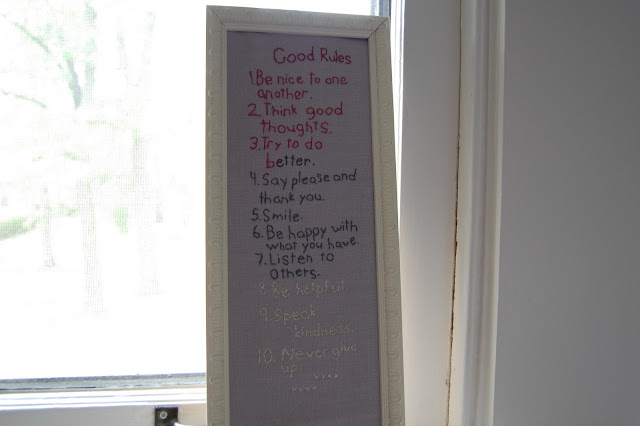 Good Rules
1.Be nice to one
another.
2.Think good
thoughts.
3.Try to do
better.
4.Say please and
thank you.
5.Smile.
6.Be happy with
what you have.
7.Listen to
others.
8.Be helpful
9.Speak
kindness.
10.Never give
up.